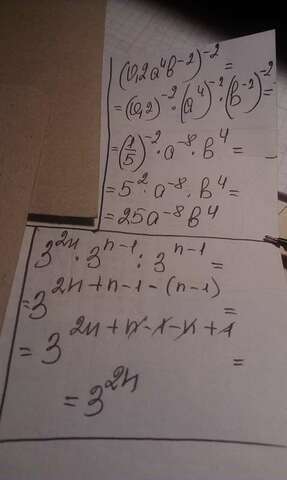 (0,2a⁴b⁻²)⁻² =
= (0,2)⁻² · (a⁴)⁻² · (b⁻²)⁻² =
= (1/5)⁻² · a⁻⁸ · b⁴ =
= 5² · a⁻⁸ · b⁴ =
= 25a⁻⁸b⁴
3²ⁿ · 3ⁿ⁻¹ : 3ⁿ⁻¹ =
= 3²ⁿ⁺ⁿ⁻¹⁻⁽ⁿ⁻¹⁾ =
= 3²ⁿ⁺ⁿ⁻¹⁻ⁿ⁺¹ =
= 3²ⁿ